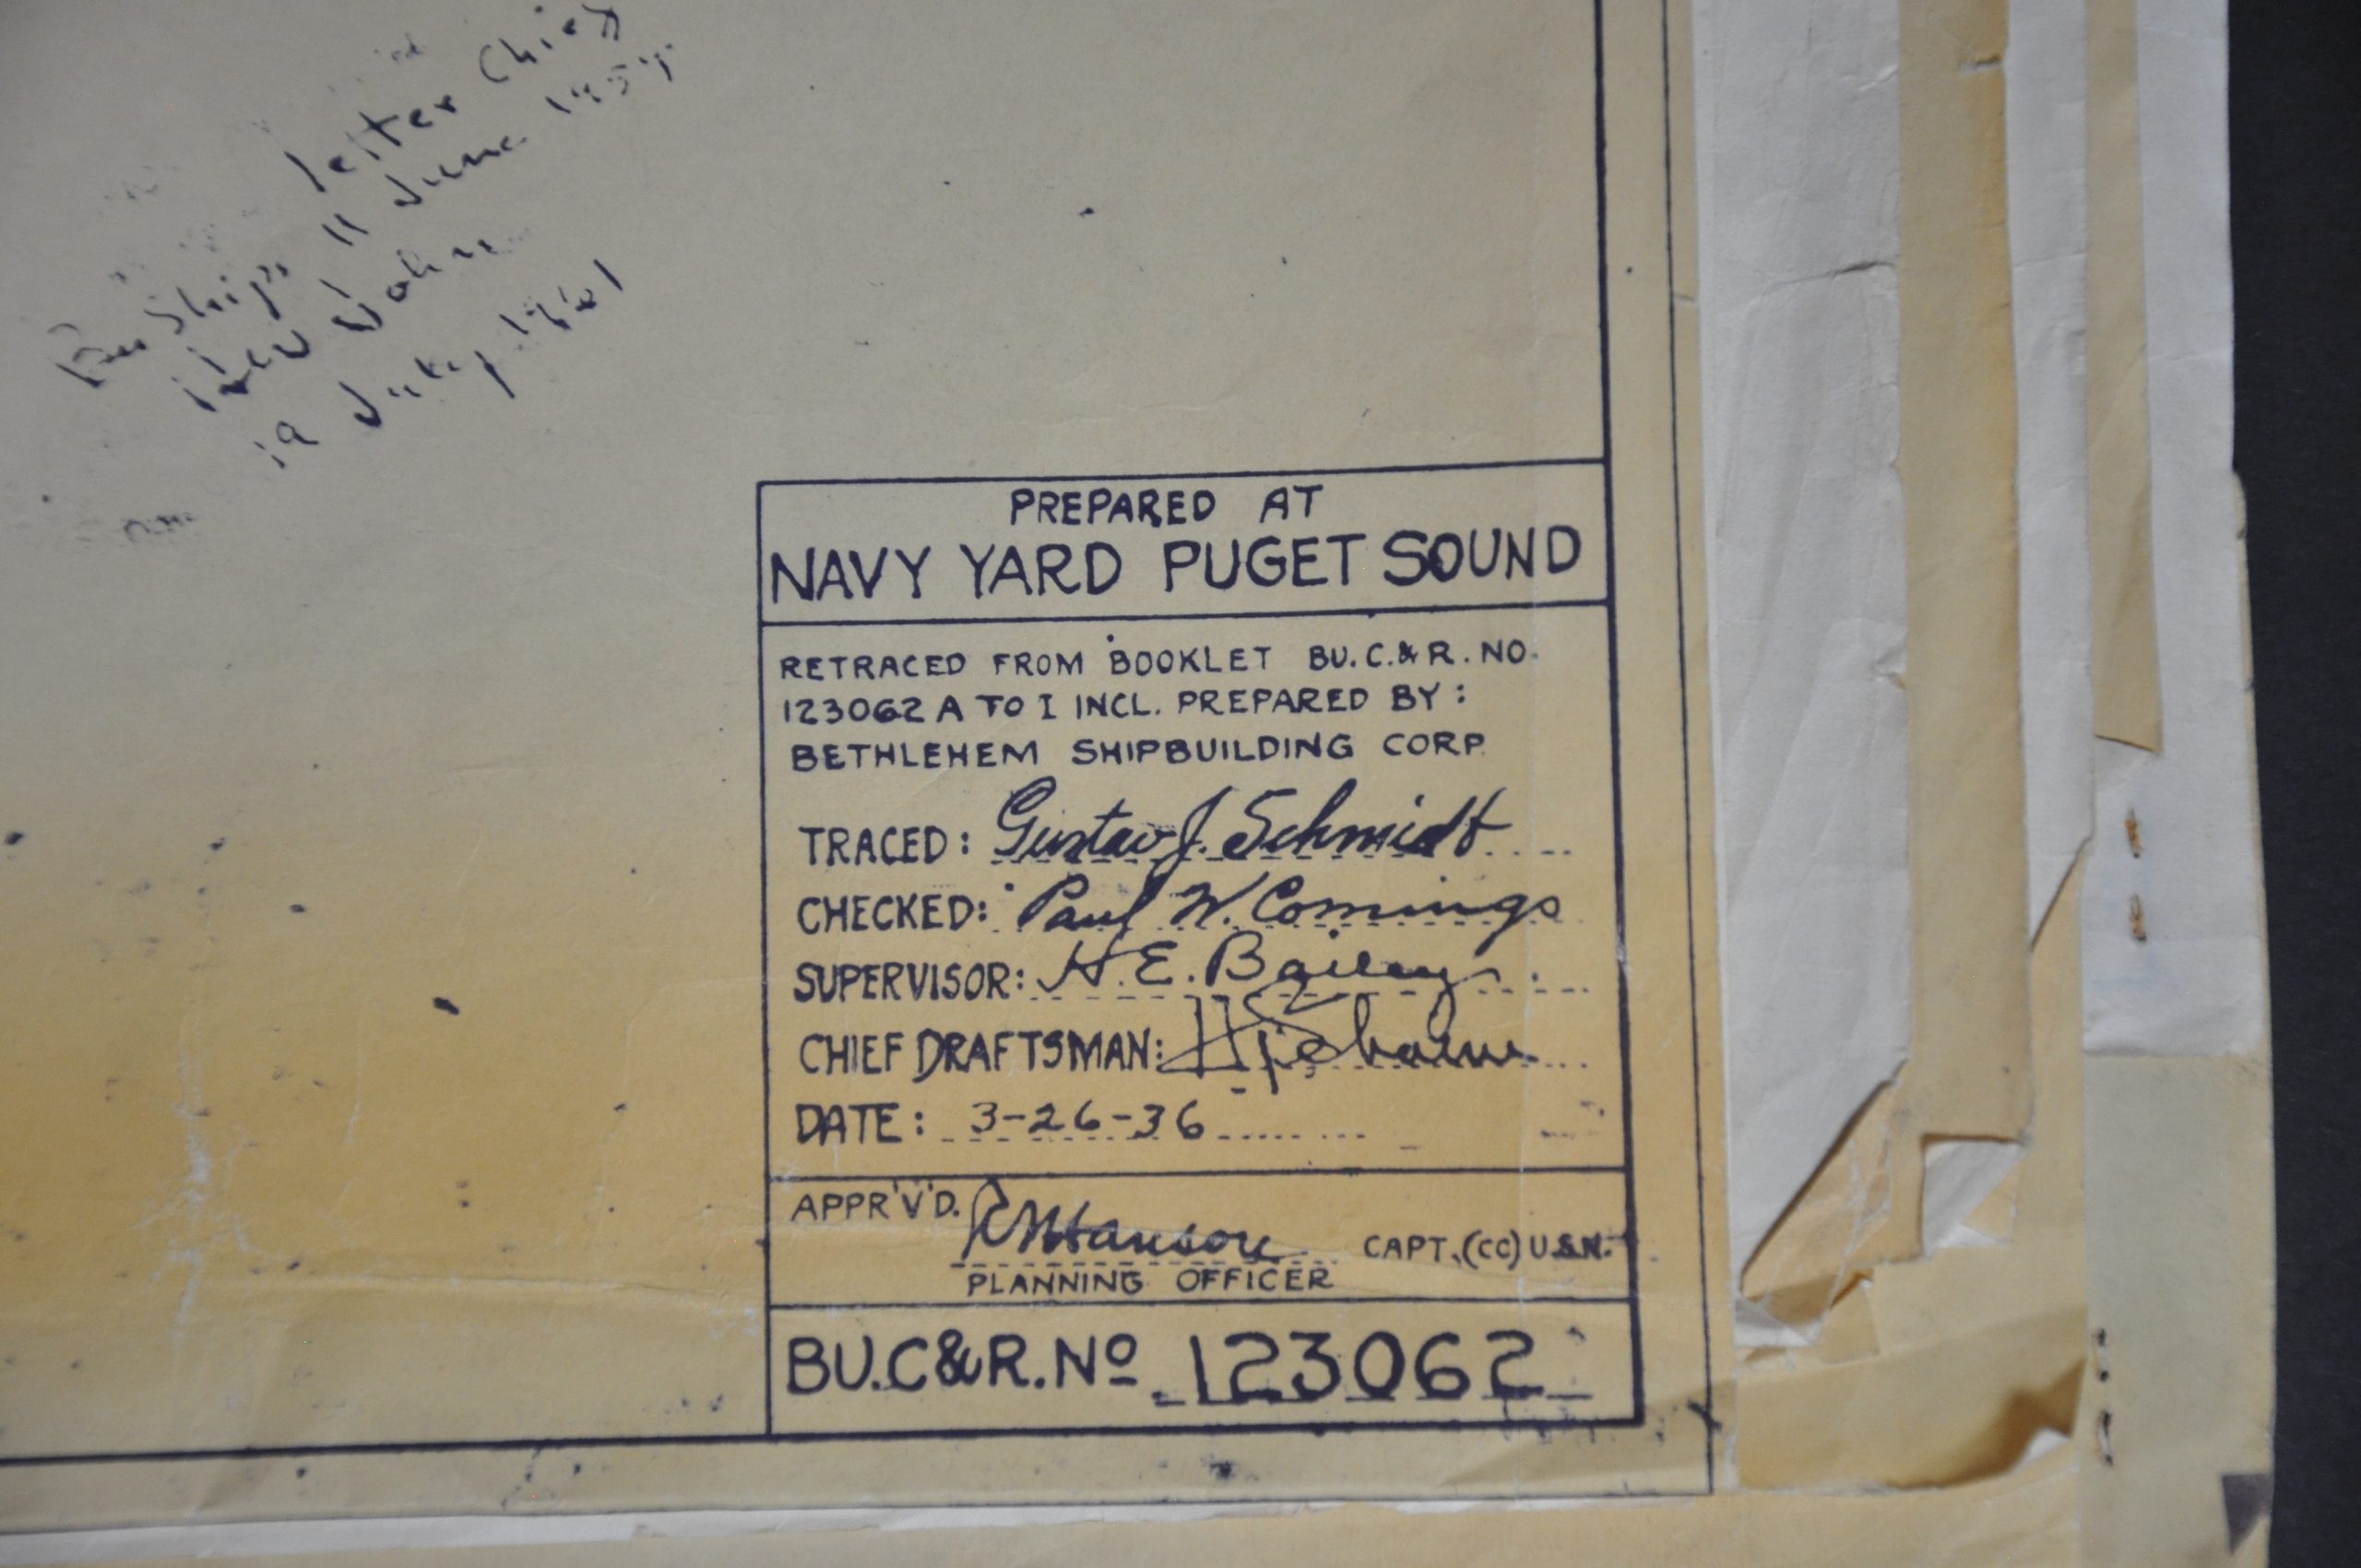 letter Chief
Bu Ships 11 June 1957
19 July 1961
PREPARED AT
NAVY YARD PUGET SOUND
RETRACED FROM BOOKLET BU. C. & R. NO.
123062 A TO I INCL. PREPARED BY:
BETHLEHEM SHIPBUILDING CORP.
TRACED: Gustav J. Schmidt
CHECKED: Paul W. Comings
SUPERVISOR: H. E. Bailey
CHIEF DRAFTSMAN:
DATE: 3-26-36
APPR'V'D. Hanson CAPT. (CC) U.S.N.
PLANNING OFFICER
BU. C&R. Nº 123062